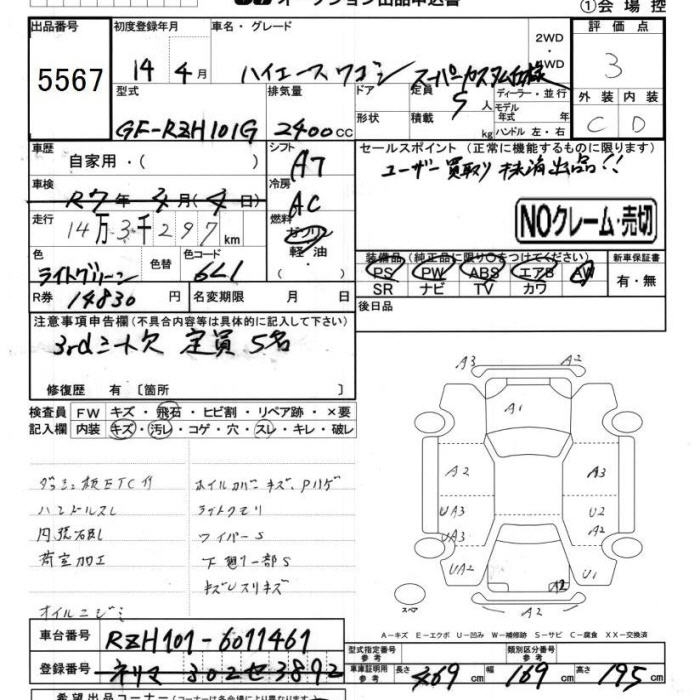 オークション出品申込書
①会場控
出品番号 初度登録年月 車名・グレード 2WD・4WD 評価点
5567 14年4月 ハイエースワゴン スーパーカスタム仕様 3
型式 排気量 ドア 定員 5人 ディーラー・並行 外装 内装
GF-RZH101G 2400cc 形状 積載 kg モデル年式 年 ハンドル 左・右 C D
車歴 自家用・( ) シフト AT セールスポイント (正常に機能するものに限ります)
ユーザー買取り 未済出品!!
車検 R7年3月(4日) 冷房 AC
走行 14万3千297km 燃料 ガソリン 軽油 ( )
NOクレーム・売切
色 ライトグリーン 色替 色コード 6L1
装備品 (純正品に限り○をつけてください) 新車保証書
PS PW ABS エアB AW 有・無
SR ナビ TV カワ
R券 14830円 名変期限 月 日 後日品
注意事項申告欄 (不具合内容等は具体的に記入して下さい)
3rdシート欠 定員5名
修復歴 有 〔箇所 〕
検査員 FW キズ・飛石・ヒビ割・リペア跡・×要
記入欄 内装 キズ・汚レ・コゲ・穴・スレ・キレ・破レ
ダッシュ板ETC付 ホイルカバーキズ、Pハゲ
ハンドルスレ ライトクモリ
内張汚レ ワイパーS
荷室加工 下廻り一部S
キズUスリキズ
オイルニジミ
A3 A2
A1
A2 A3
UA3 U2
UA3 A2
UA2 U1
A2
スペア A2
A-キズ E-エクボ U-凹み W-補修跡 S-サビ C-腐食 XX-交換済
車台番号 RZH101-6011461 型式指定番号 参考 類別区分番号 参考
登録番号 ネリマ 302せ3892 車庫証明用 参考 長さ 469cm 幅 169cm 高さ 195cm
希望出品コーナー